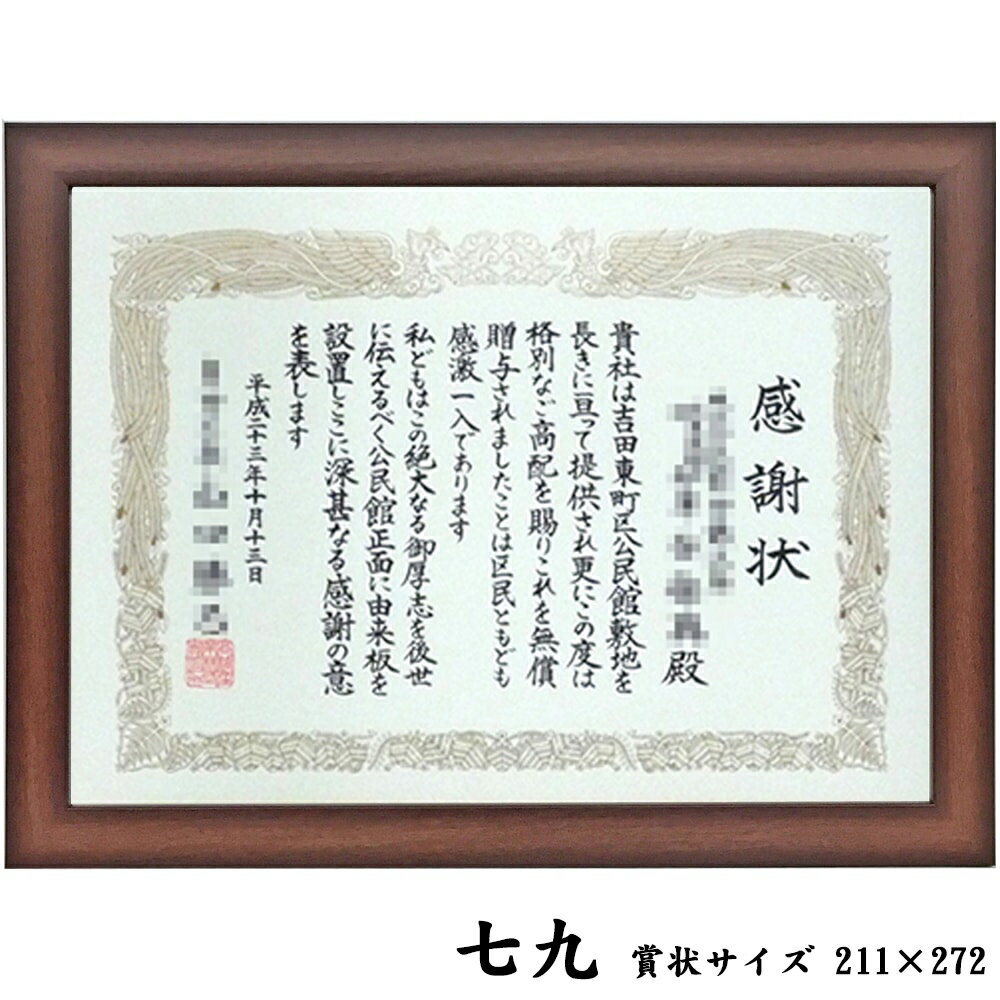 感謝状
殿
貴社は吉田東町区公民館敷地を
長きに亘って提供され更にこの度は
格別なご高配を賜りこれを無償
贈与されましたことは区民ともども
感激一入であります
私どもはこの絶大なる御厚志を後世
に伝えるべく公民館正面に由来板を
設置しここに深甚なる感謝の意
を表します
平成二十三年十月十三日
七九 賞状サイズ 211×272